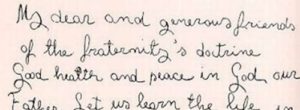 My dear and generous friends
of the fraternity's doctrine
Good health and peace in God our
Father. Let us learn the life in